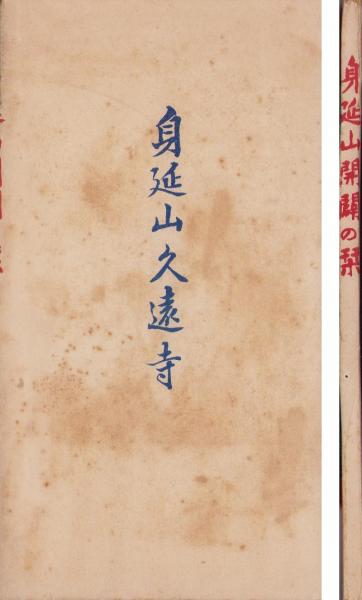 身延山久遠寺
身延山開闢の栞